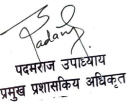 पदमराज उपाध्याय
प्रमुख प्रशासकिय अधिकृत